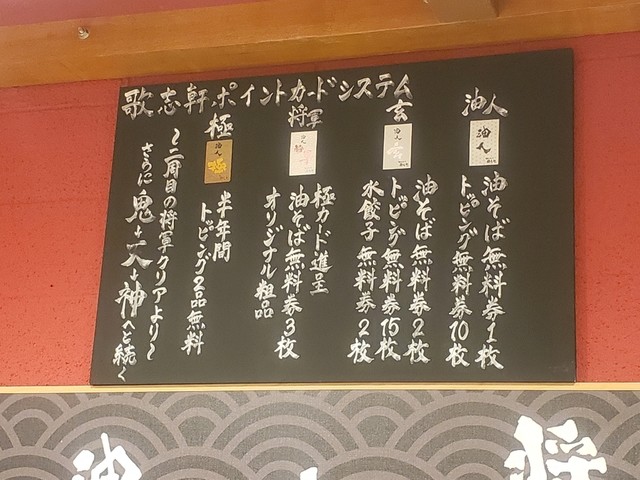 歌志軒ポイントカードシステム
油人
油そば無料券1枚
トッピング無料券10枚
玄
油そば無料券2枚
トッピング無料券15枚
水餃子無料券2枚
将軍
極カード進呈
油そば無料券3枚
オリジナル粗品
極
半年間
トッピング2品無料
〜二周目の将軍クリアより〜
さらに鬼→天→神へと続く
油
将